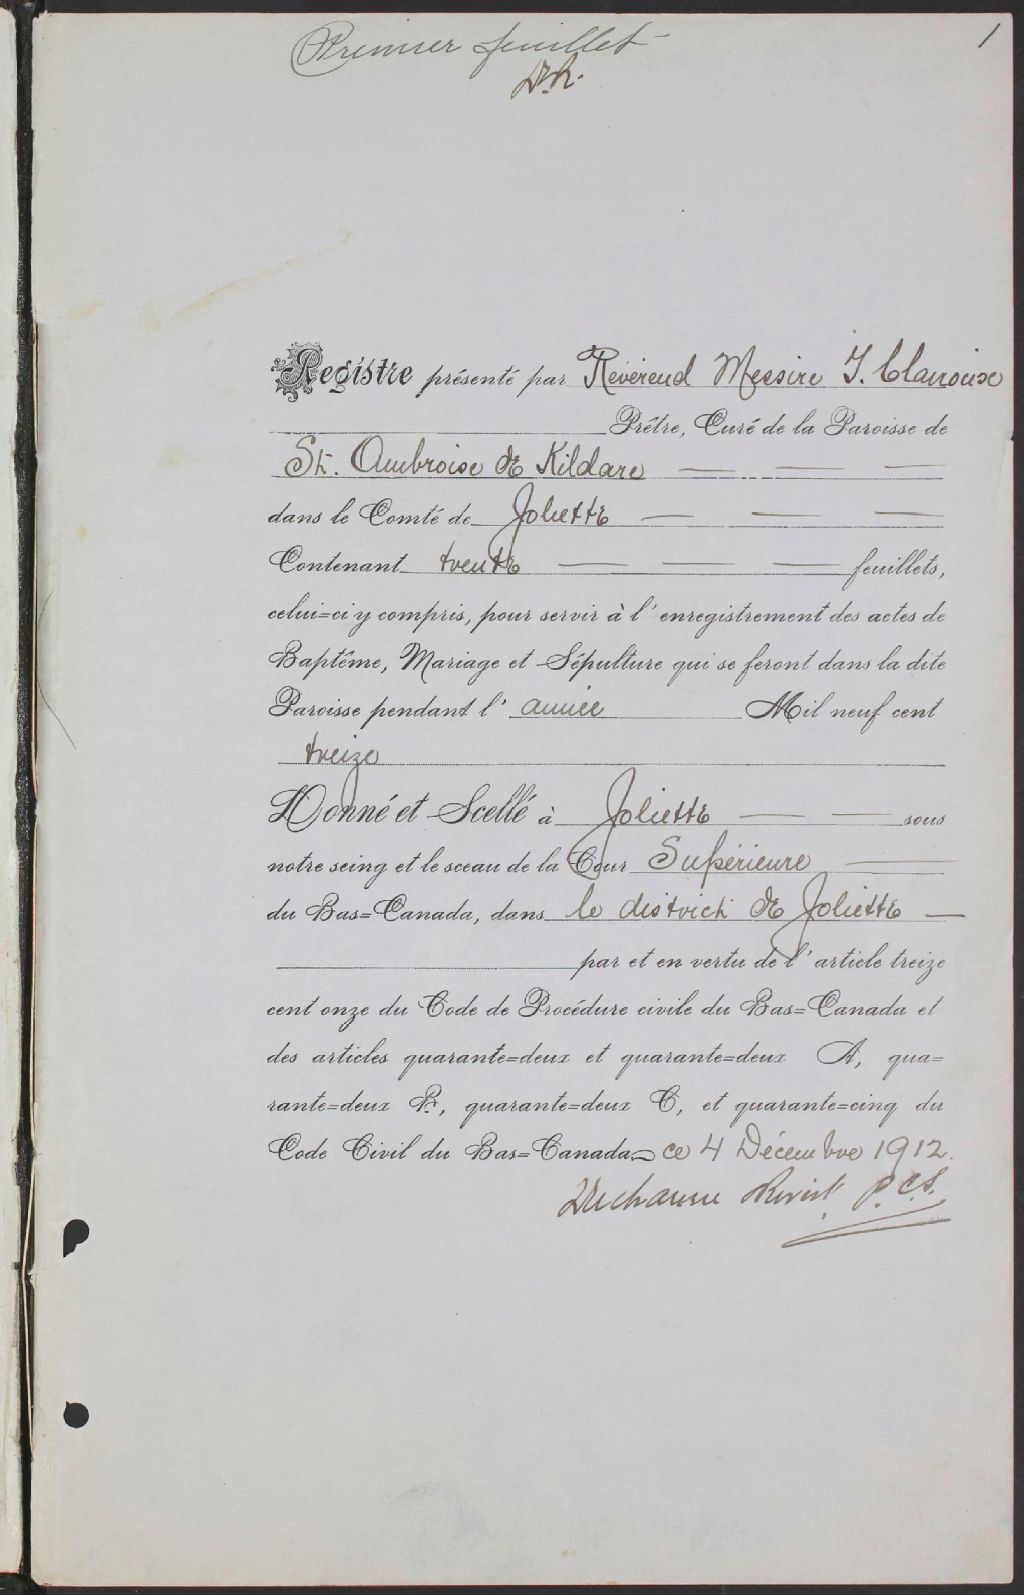 1
Premier feuillet
D. R.
Registre présenté par Révérend Messire J. Clairoux
Prêtre, Curé de la Paroisse de
St. Ambroise de Kildare
dans le Comté de Joliette
Contenant trente feuillets,
celui=ci y compris, pour servir à l'enregistrement des actes de
Baptême, Mariage et Sépulture qui se feront dans la dite
Paroisse pendant l'année Mil neuf cent
treize
Donné et Scellé à Joliette sous
notre seing et le sceau de la Cour Supérieure
du Bas=Canada, dans le district de Joliette
par et en vertu de l'article treize
cent onze du Code de Procédure civile du Bas=Canada et
des articles quarante=deux et quarante=deux A, qua=
rante=deux B, quarante=deux C, et quarante=cinq du
Code Civil du Bas=Canada ce 4 Décembre 1912.
P. C. S.